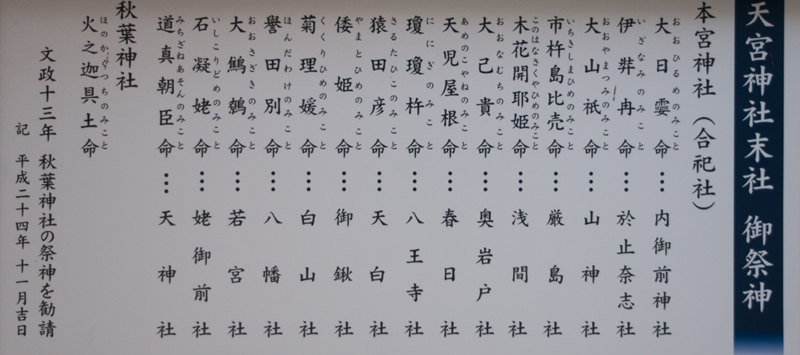 天宮神社末社 御祭神
本宮神社（合祀社）
大日孁命…内御前神社
おおひるめのみこと
伊弉冉命…於止奈志社
いざなみのみこと
大山祇命…山神社
おおやまつみのみこと
市杵島比売命…厳島社
いちきしまひめのみこと
木花開耶姫命…浅間社
このはなさくやひめのみこと
大己貴命…奥岩戸社
おおなむちのみこと
天児屋根命…春日社
あめのこやねのみこと
瓊瓊杵命…八王寺社
ににぎのみこと
猿田彦命…天白社
さるたひこのみこと
倭姫命…御鍬社
やまとひめのみこと
菊理媛命…白山社
くくりひめのみこと
誉田別命…八幡社
ほんだわけのみこと
大鷦鷯命…若宮社
おおさざきのみこと
石凝姥命…姥御前社
いしこりどめのみこと
道真朝臣命…天神社
みちざねあそんのみこと
秋葉神社
火之迦具土命
ほのかぐつちのみこと
文政十三年 秋葉神社の祭神を勧請
記 平成二十四年 十一月吉日